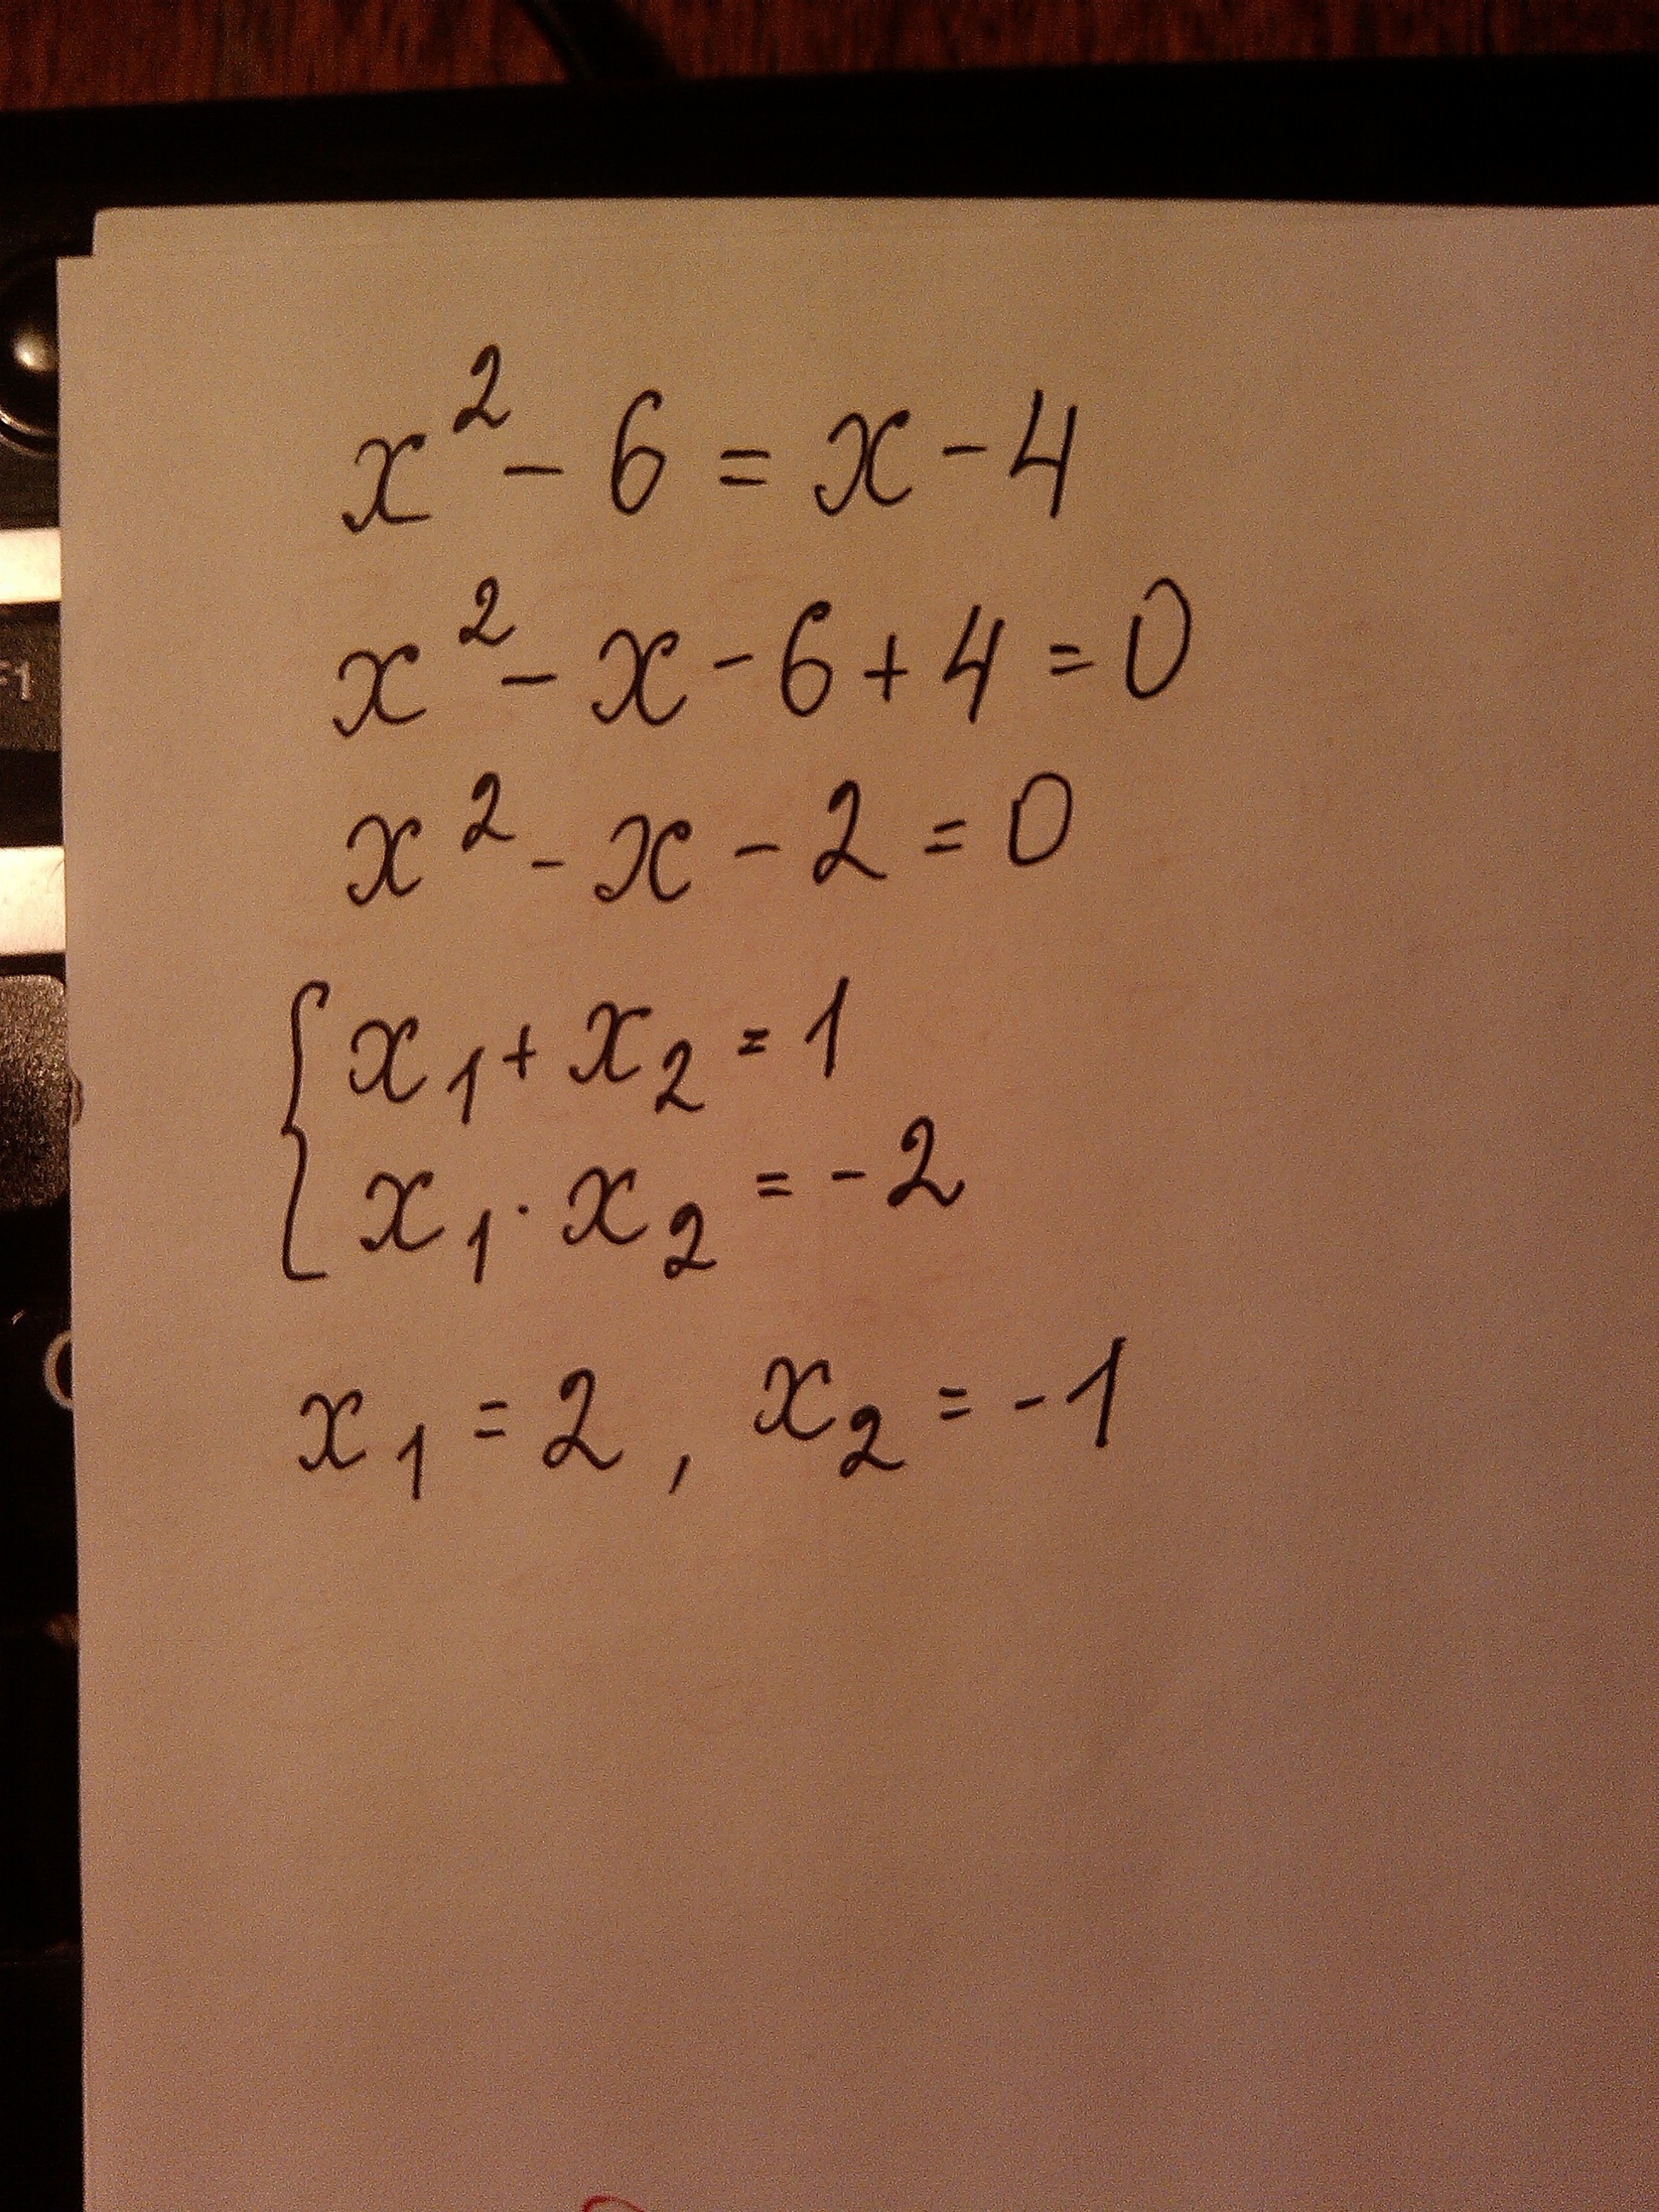 x² - 6 = x - 4
x² - x - 6 + 4 = 0
x² - x - 2 = 0
{ x₁ + x₂ = 1
x₁ · x₂ = -2
x₁ = 2 , x₂ = -1
F1